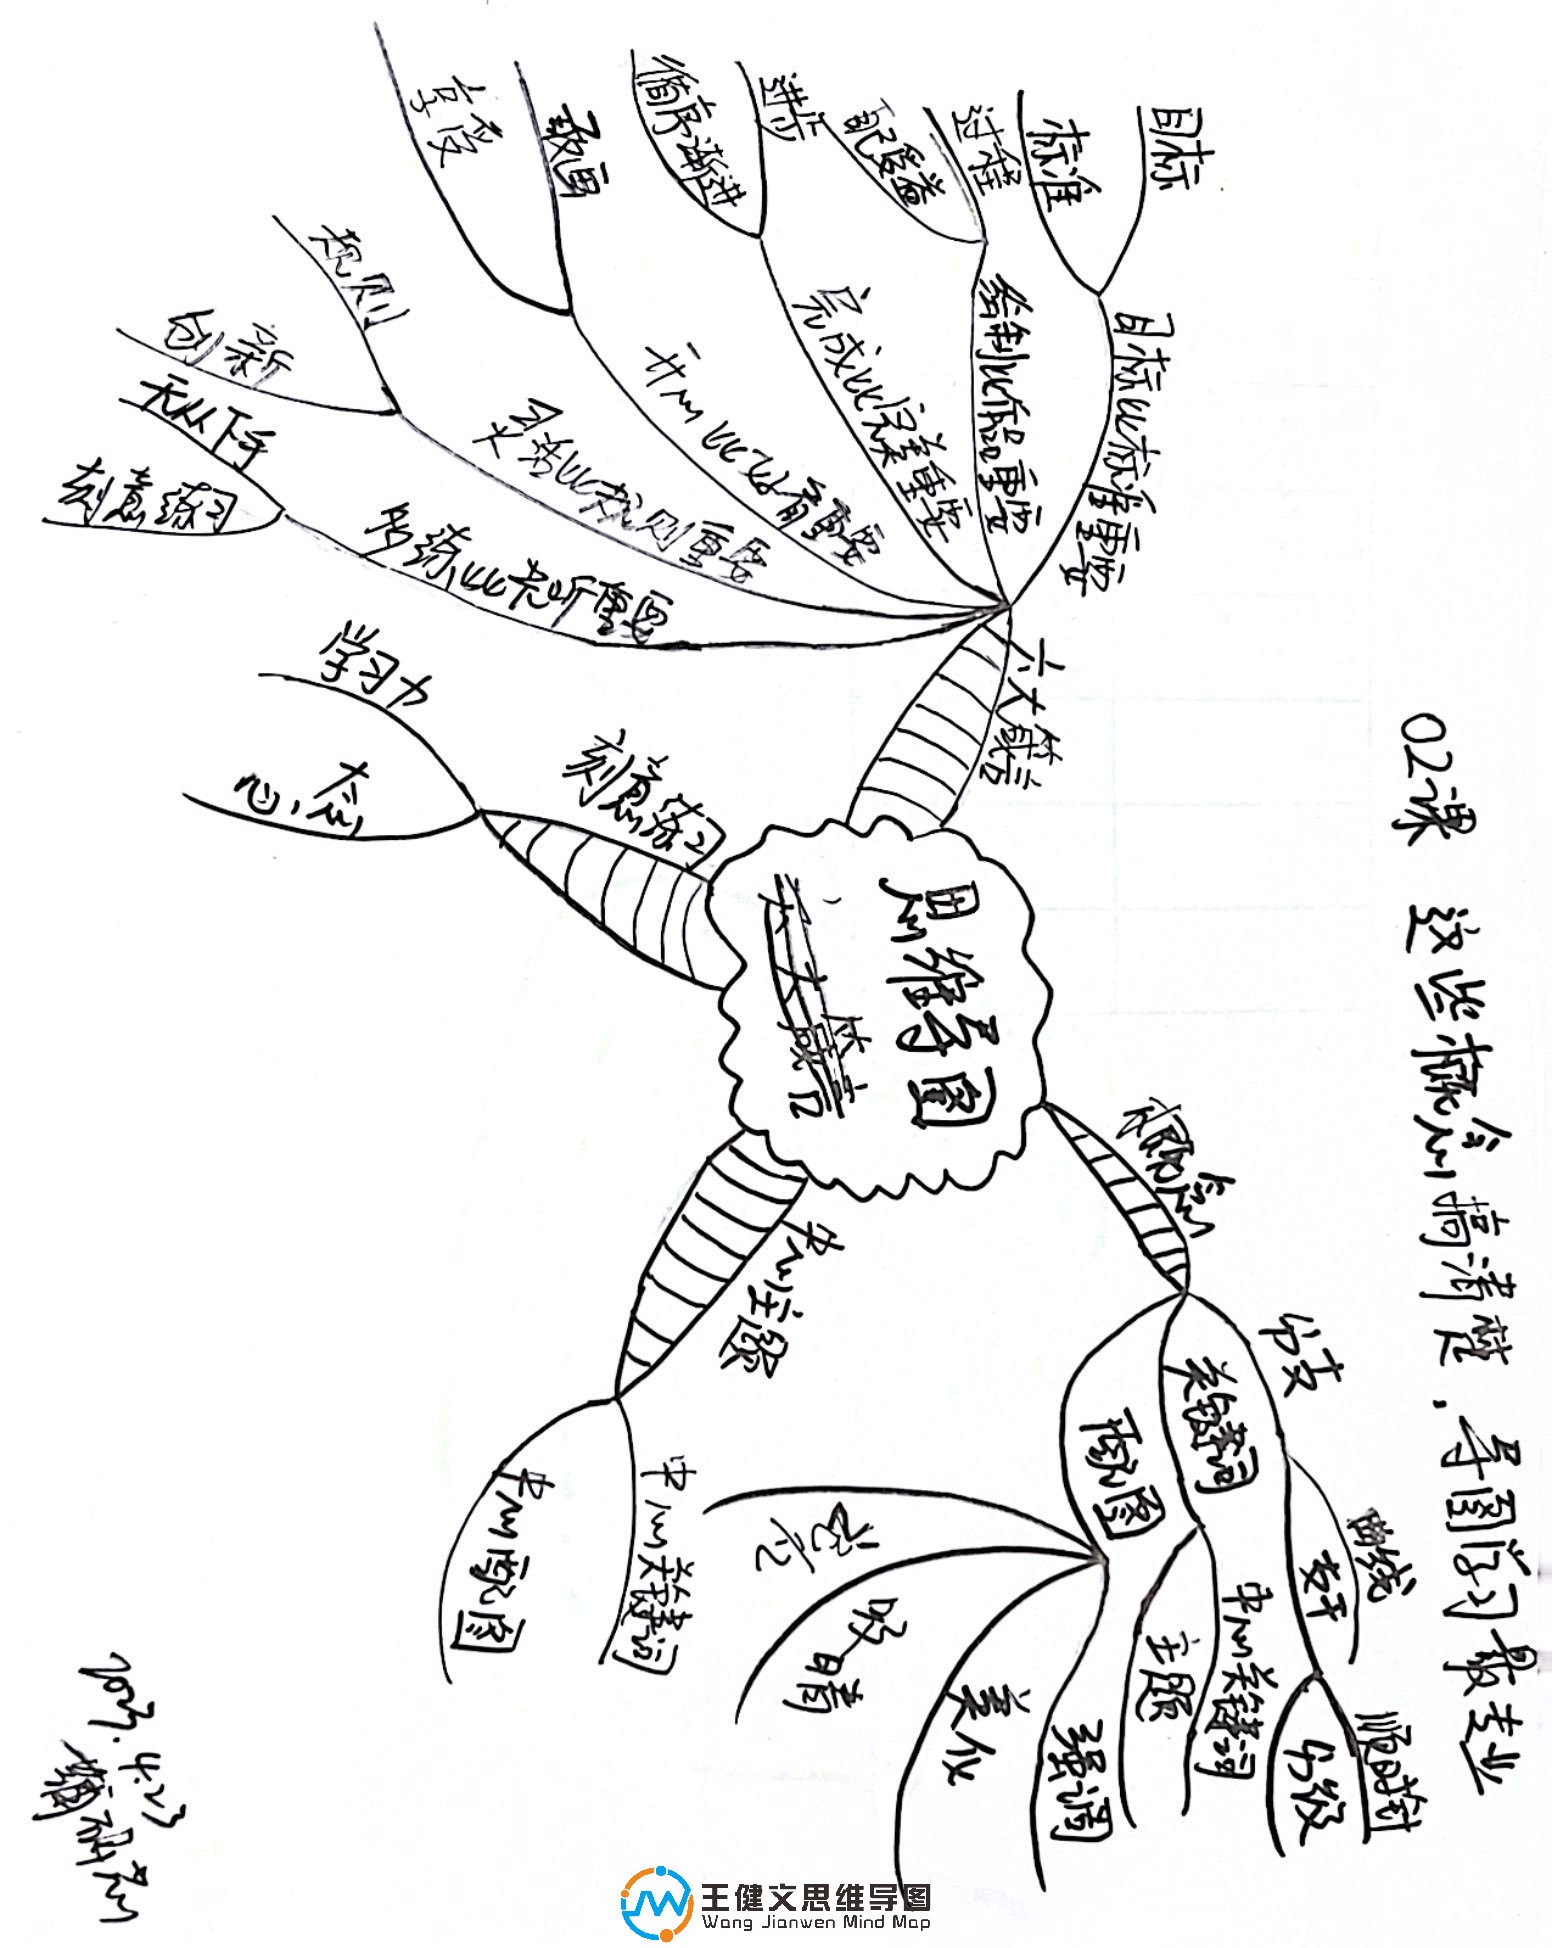 02课 这些概念搞清楚,导图学习最专业
思维导图
六大箴言
概念
分支
曲线
支干
顺时针
分级
关键词
中心关键词
主题
配图
强调
美化
吸睛
中心主题
中心关键词
中心配图
刻意练习
心态
学习力
六大箴言
多练比老听重要
刻意练习
无从下手
灵活比规则重要
创新
规则
开心比好看重要
享受
敢画
完成比完美重要
循序渐进
进步
绘制比作品重要
配受益
过程
目标比标准重要
标准
目标
2023.4.23
王健文思维导图
Wang Jianwen Mind Map